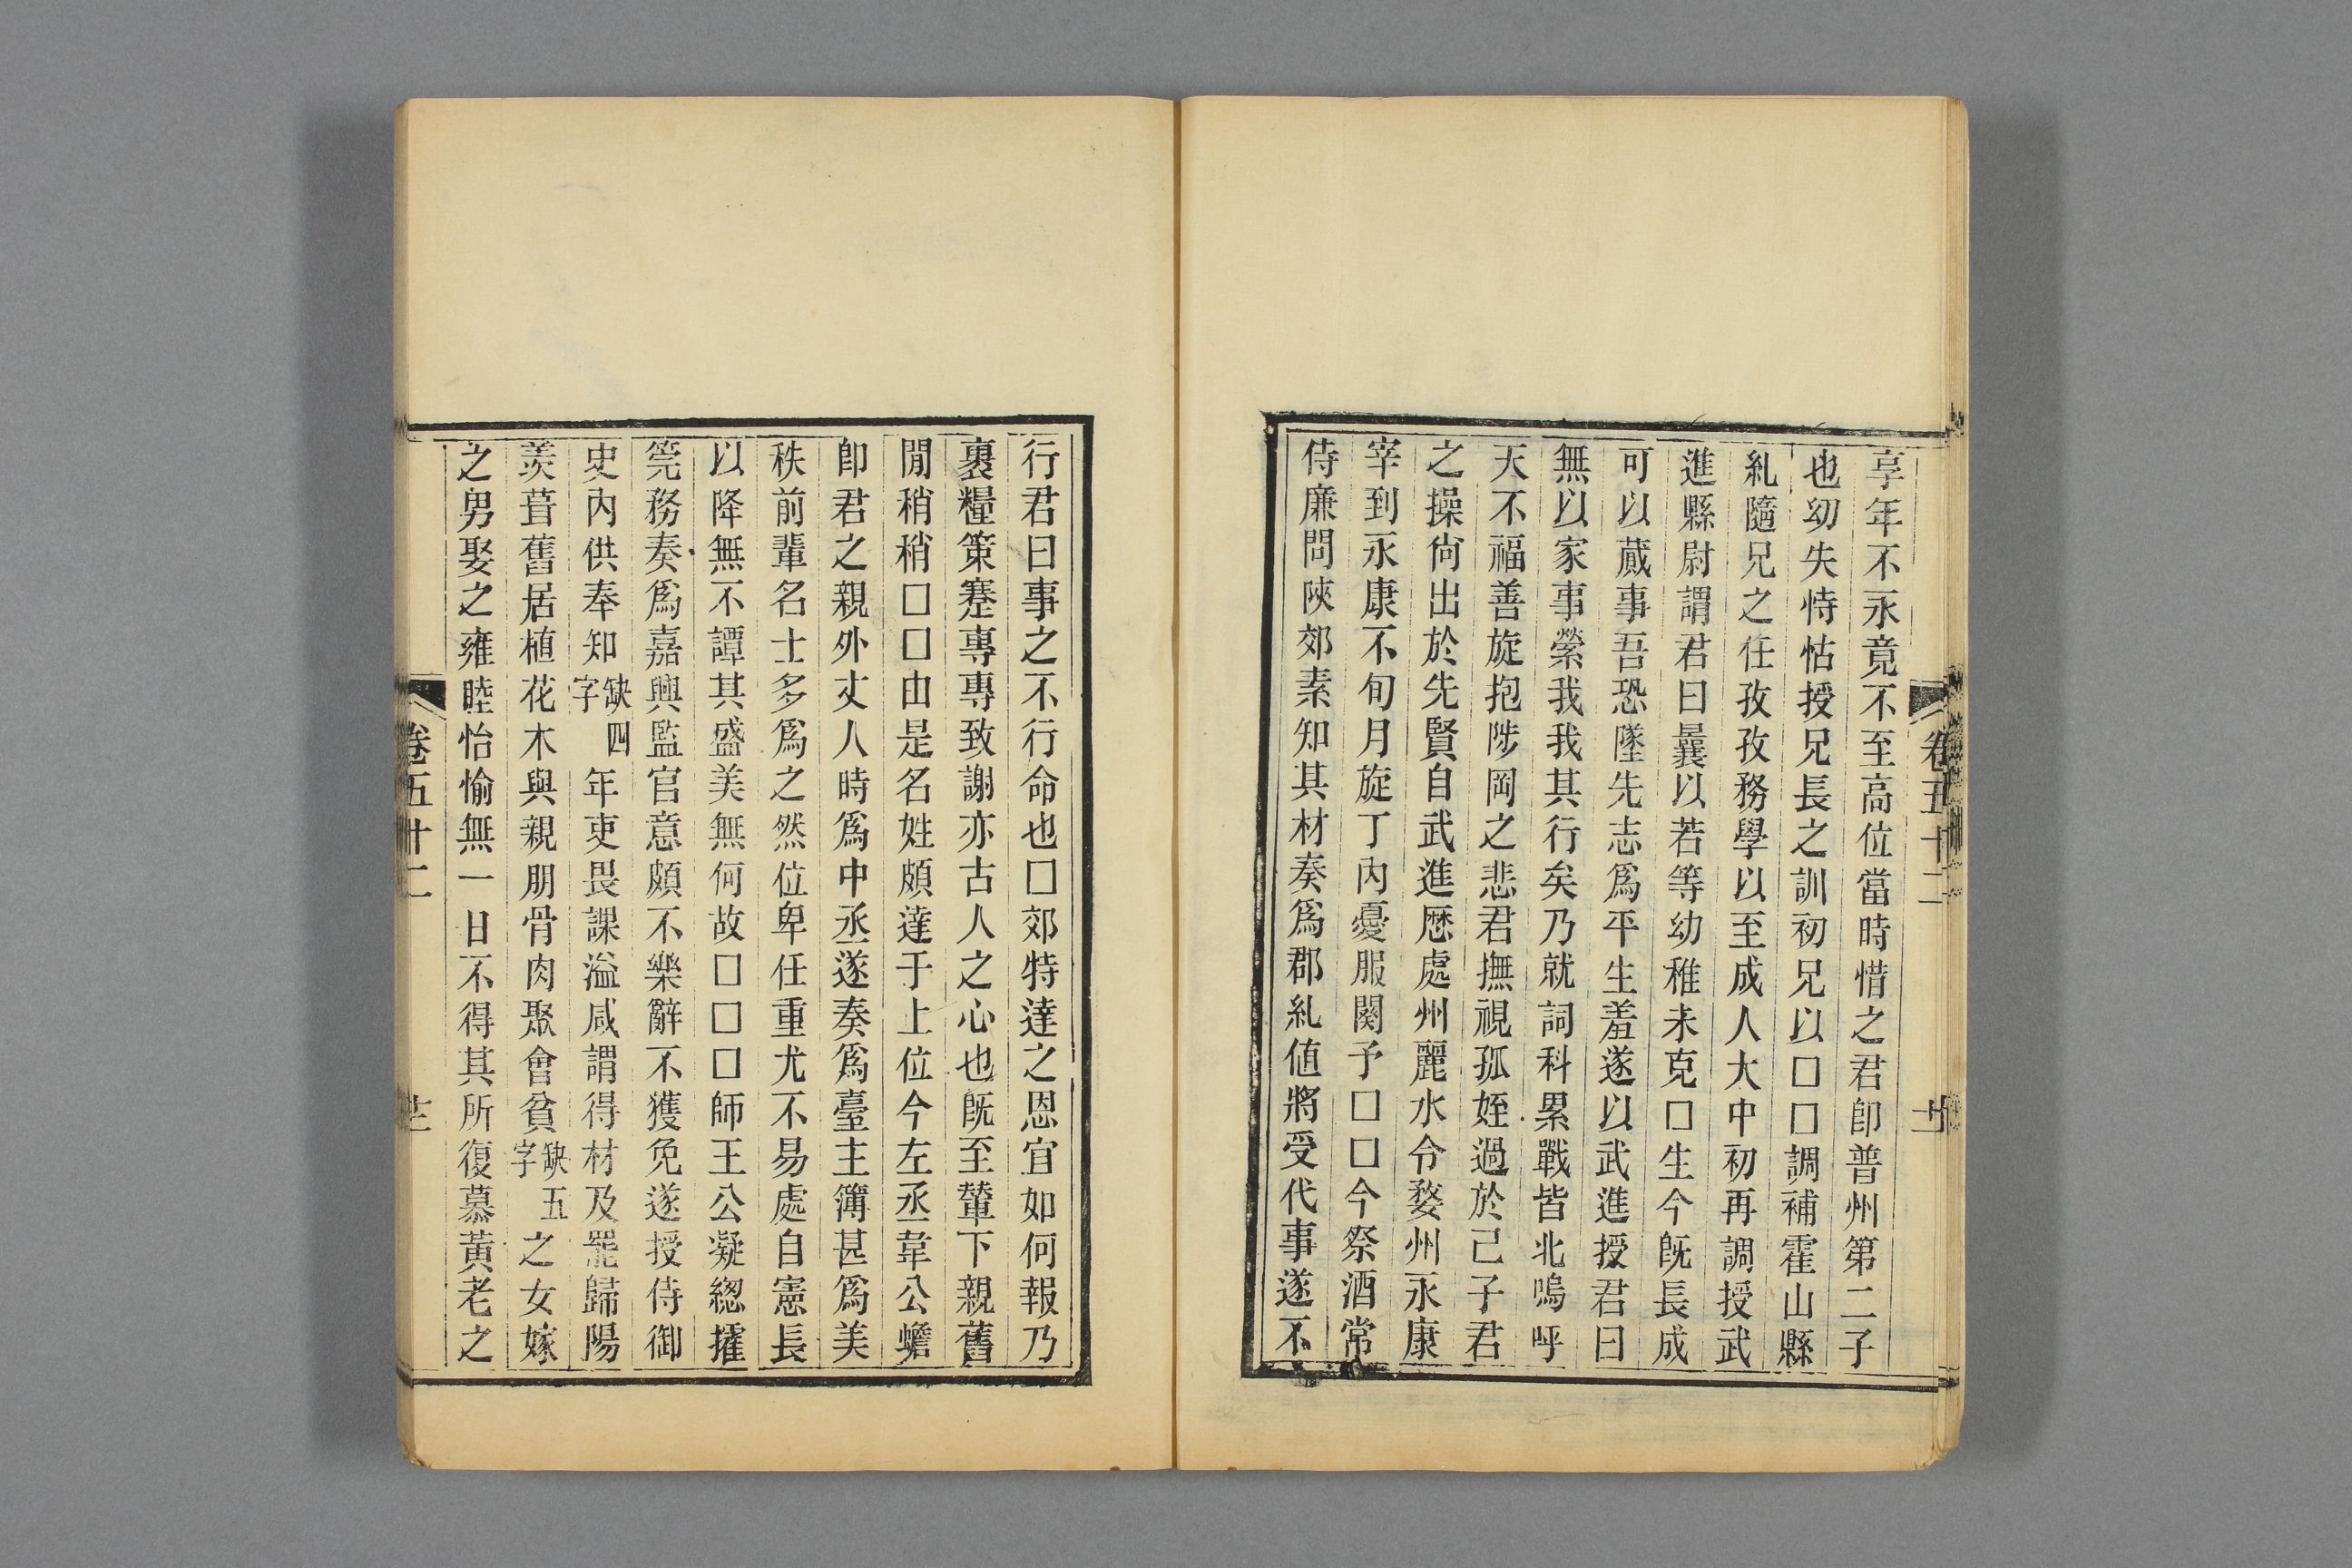 享年不永竟不至高位當時惜之君卽普州第二子
也幼失恃怙授兄長之訓初兄以囗囗調補霍山縣
糺隨兄之任孜孜務學以至成人大中初再調授武
進縣尉謂君曰曩以若等幼稚未克囗生今旣長成
可以蕆事吾恐墜先志爲平生羞遂以武進授君曰
無以家事縈我我其行矣乃就詞科累戰皆北嗚呼
天不福善旋抱陟岡之悲君撫視孤姪過於己子君
之操尙出於先賢自武進歷處州麗水令婺州永康
宰到永康不旬月旋丁內憂服闋予囗囗今祭酒常
侍廉問陝郊素知其材奏爲郡糺値將受代事遂不
卷五十二
行君曰事之不行命也囗郊特達之恩宜如何報乃
裹糧策蹇專專致謝亦古人之心也旣至輦下親舊
閒稍稍囗囗由是名姓頗達于上位今左丞韋公蟾
卽君之親外丈人時爲中丞遂奏爲臺主簿甚爲美
秩前輩名士多爲之然位卑任重尤不易處自憲長
以降無不譚其盛美無何故囗囗囗師王公凝總擢
筦務奏爲嘉興監官意頗不樂辭不獲免遂授侍御
史內供奉知缺四字年吏畏課溢咸謂得材及罷歸陽
羨葺舊居植花木與親朋骨肉聚會貧缺五字之女嫁
之男娶之雍睦怡愉無一日不得其所復慕黃老之
卷五十二